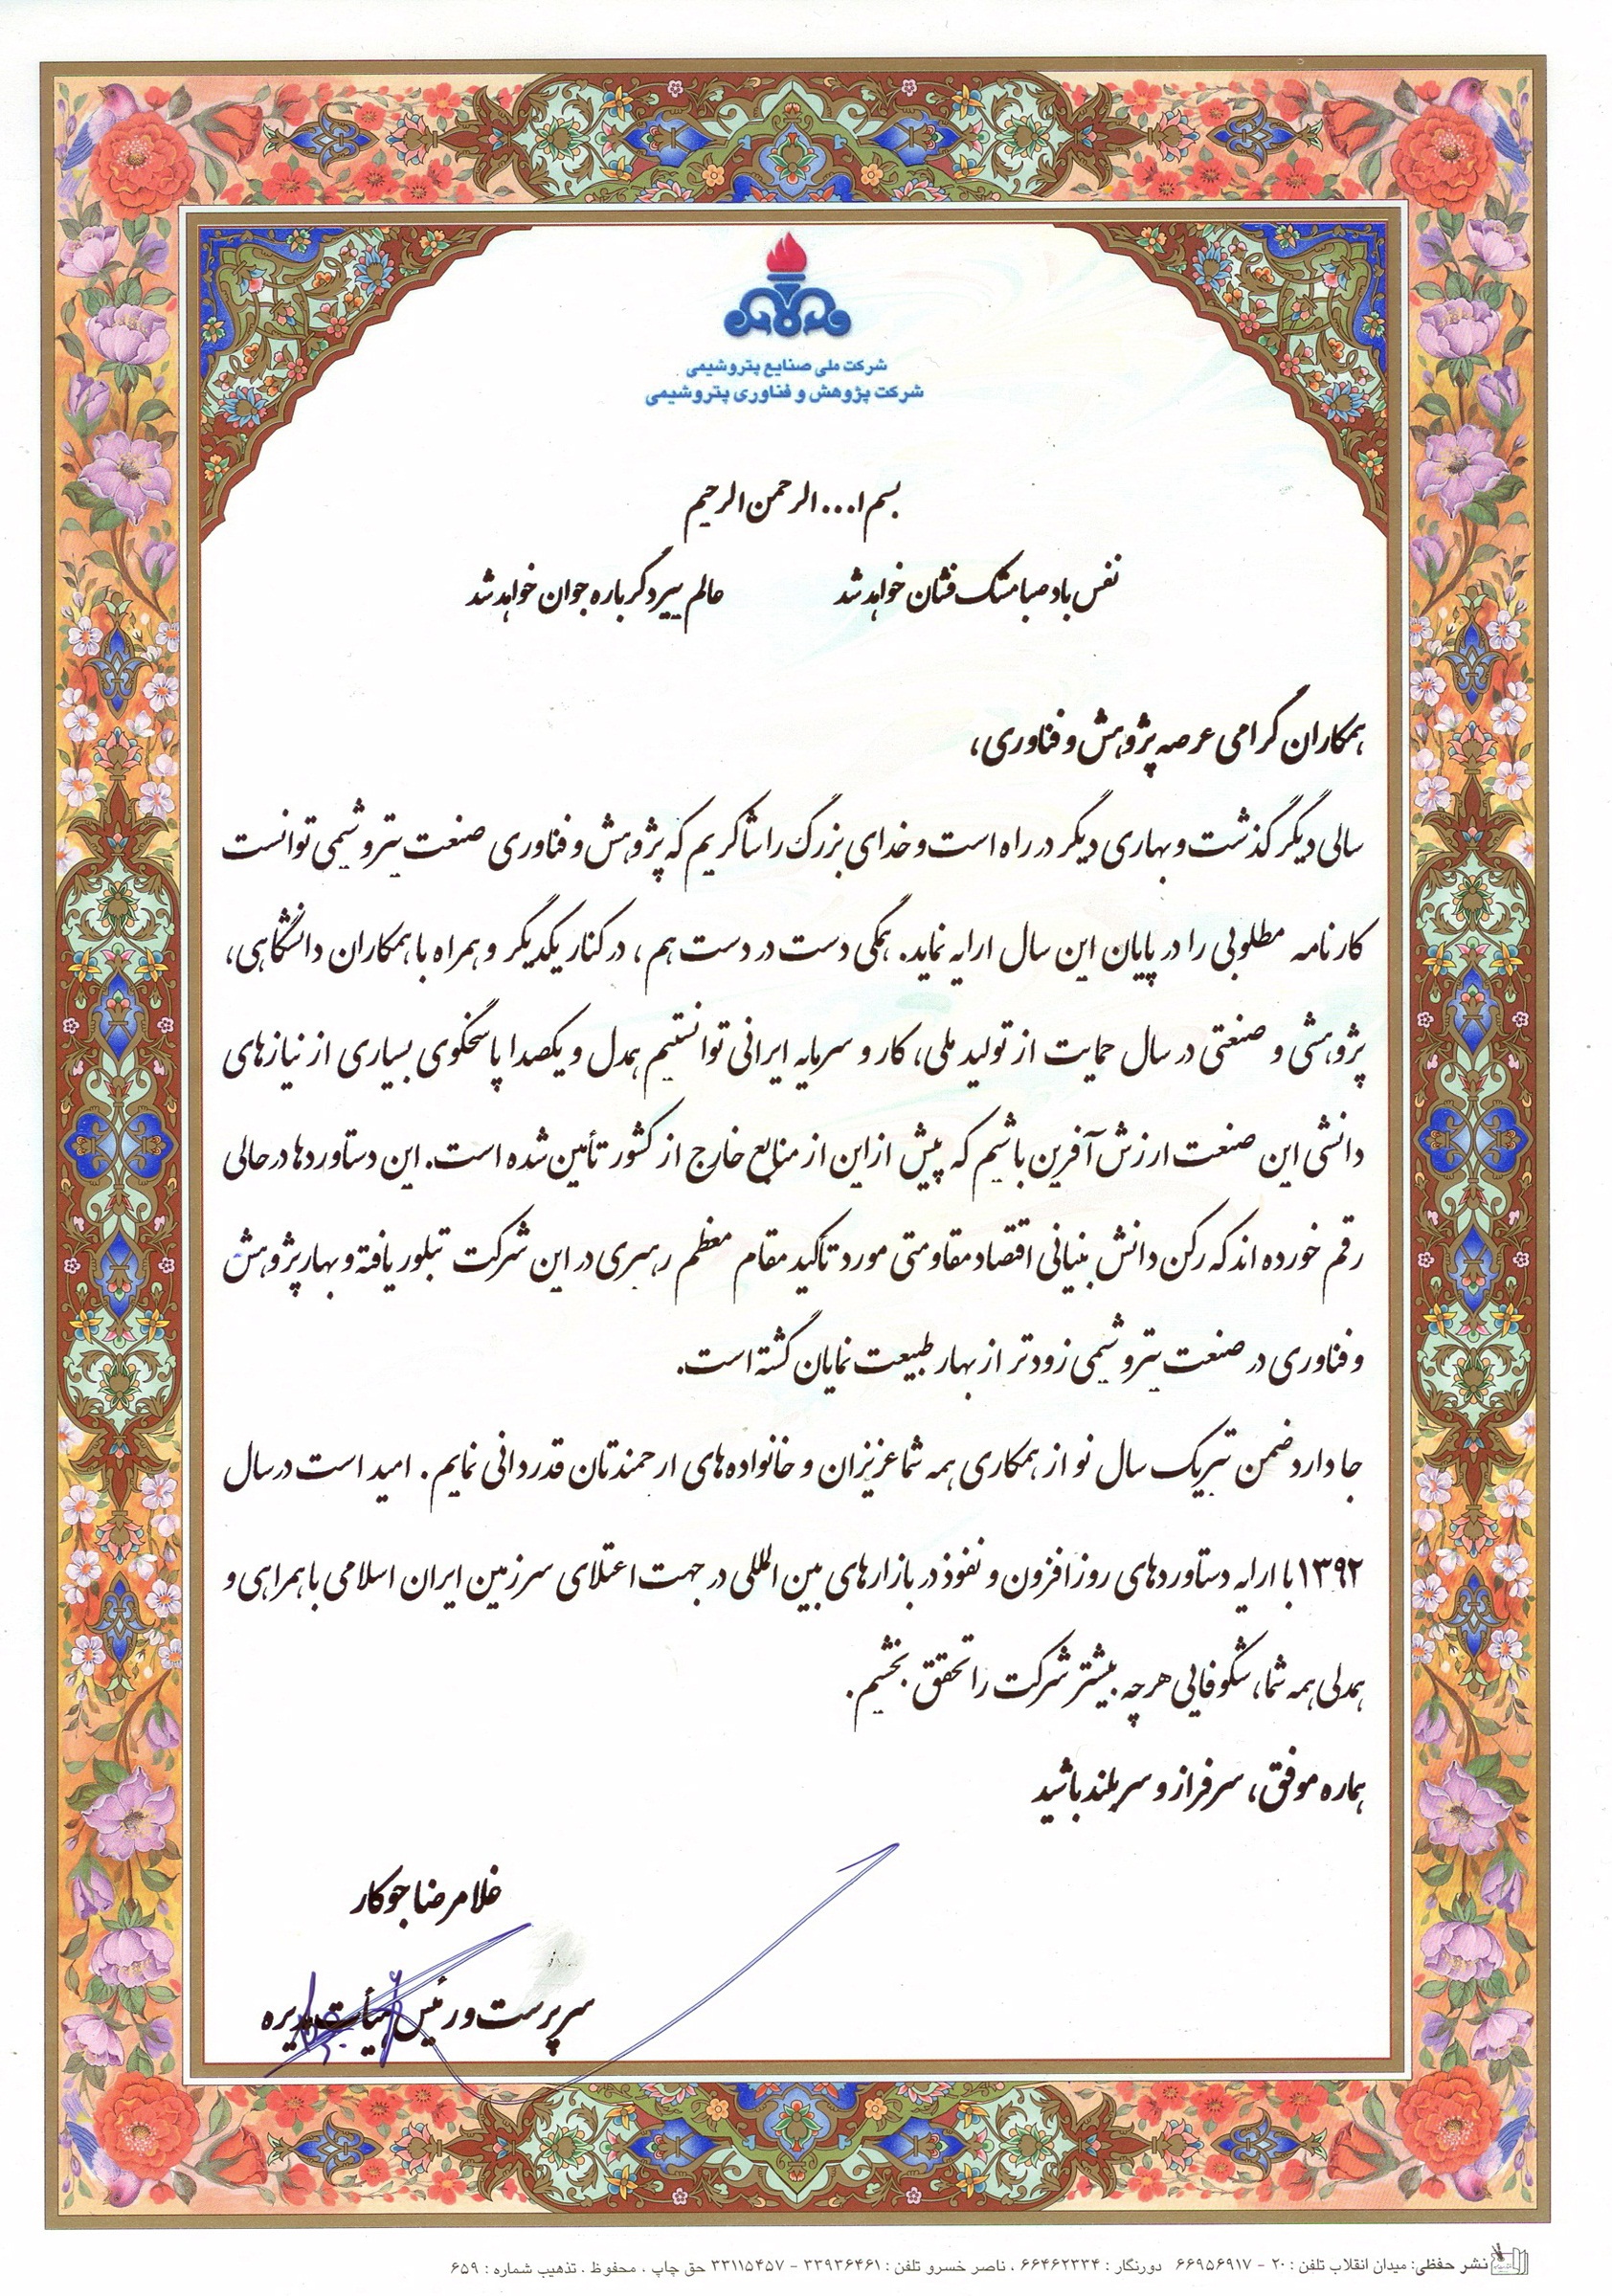 شرکت ملی صنایع پتروشیمی
شرکت پژوهش و فناوری پتروشیمی
بسم ا... الرحمن الرحیم
نفس باد صبا مشک فشان خواهد شد عالم پیر دگرباره جوان خواهد شد
همکاران گرامی عرصه پژوهش و فناوری،
سالی دیگر گذشت و بهاری دیگر در راه است و خدای بزرگ را شاکریم که پژوهش و فناوری صنعت پتروشیمی توانست
کارنامه مطلوبی را در پایان این سال ارایه نماید. همگی دست در دست هم، در کنار یکدیگر و همراه با همکاران دانشگاهی،
پژوهشی و صنعتی در سال حمایت از تولید ملی، کار و سرمایه ایرانی توانستیم همدل و یکصدا پاسخگوی بسیاری از نیازهای
دانشی این صنعت ارزش آفرین باشیم که پیش از این از منابع خارج از کشور تأمین شده است. این دستاوردها در حالی
رقم خورده اند که رکن دانش بنیانی اقتصاد مقاومتی مورد تاکید مقام معظم رهبری در این شرکت تبلور یافته و بهار پژوهش
و فناوری در صنعت پتروشیمی زودتر از بهار طبیعت نمایان گشته است.
جا دارد ضمن تبریک سال نو از همکاری همه شما عزیزان و خانواده های ارجمندتان قدردانی نمایم. امید است در سال
۱۳۹۲ با ارایه دستاوردهای روزافزون و نفوذ در بازارهای بین المللی در جهت اعتلای سرزمین ایران اسلامی با همراهی و
همدلی همه شما، شکوفایی هرچه بیشتر شرکت را تحقق بخشیم.
هماره موفق، سرفراز و سربلند باشید
غلامرضا جوکار
سرپرست و رئیس هیأت مدیره
نشر حفظی: میدان انقلاب تلفن : ۲۰ - ۶۶۹۵۶۹۱۷ دورنگار : ۶۶۴۶۲۳۳۴ ، ناصر خسرو تلفن : ۳۳۹۳۶۴۶۱ - ۳۳۱۱۵۴۵۷ حق چاپ ، محفوظ . تذهیب شماره : ۶۵۹